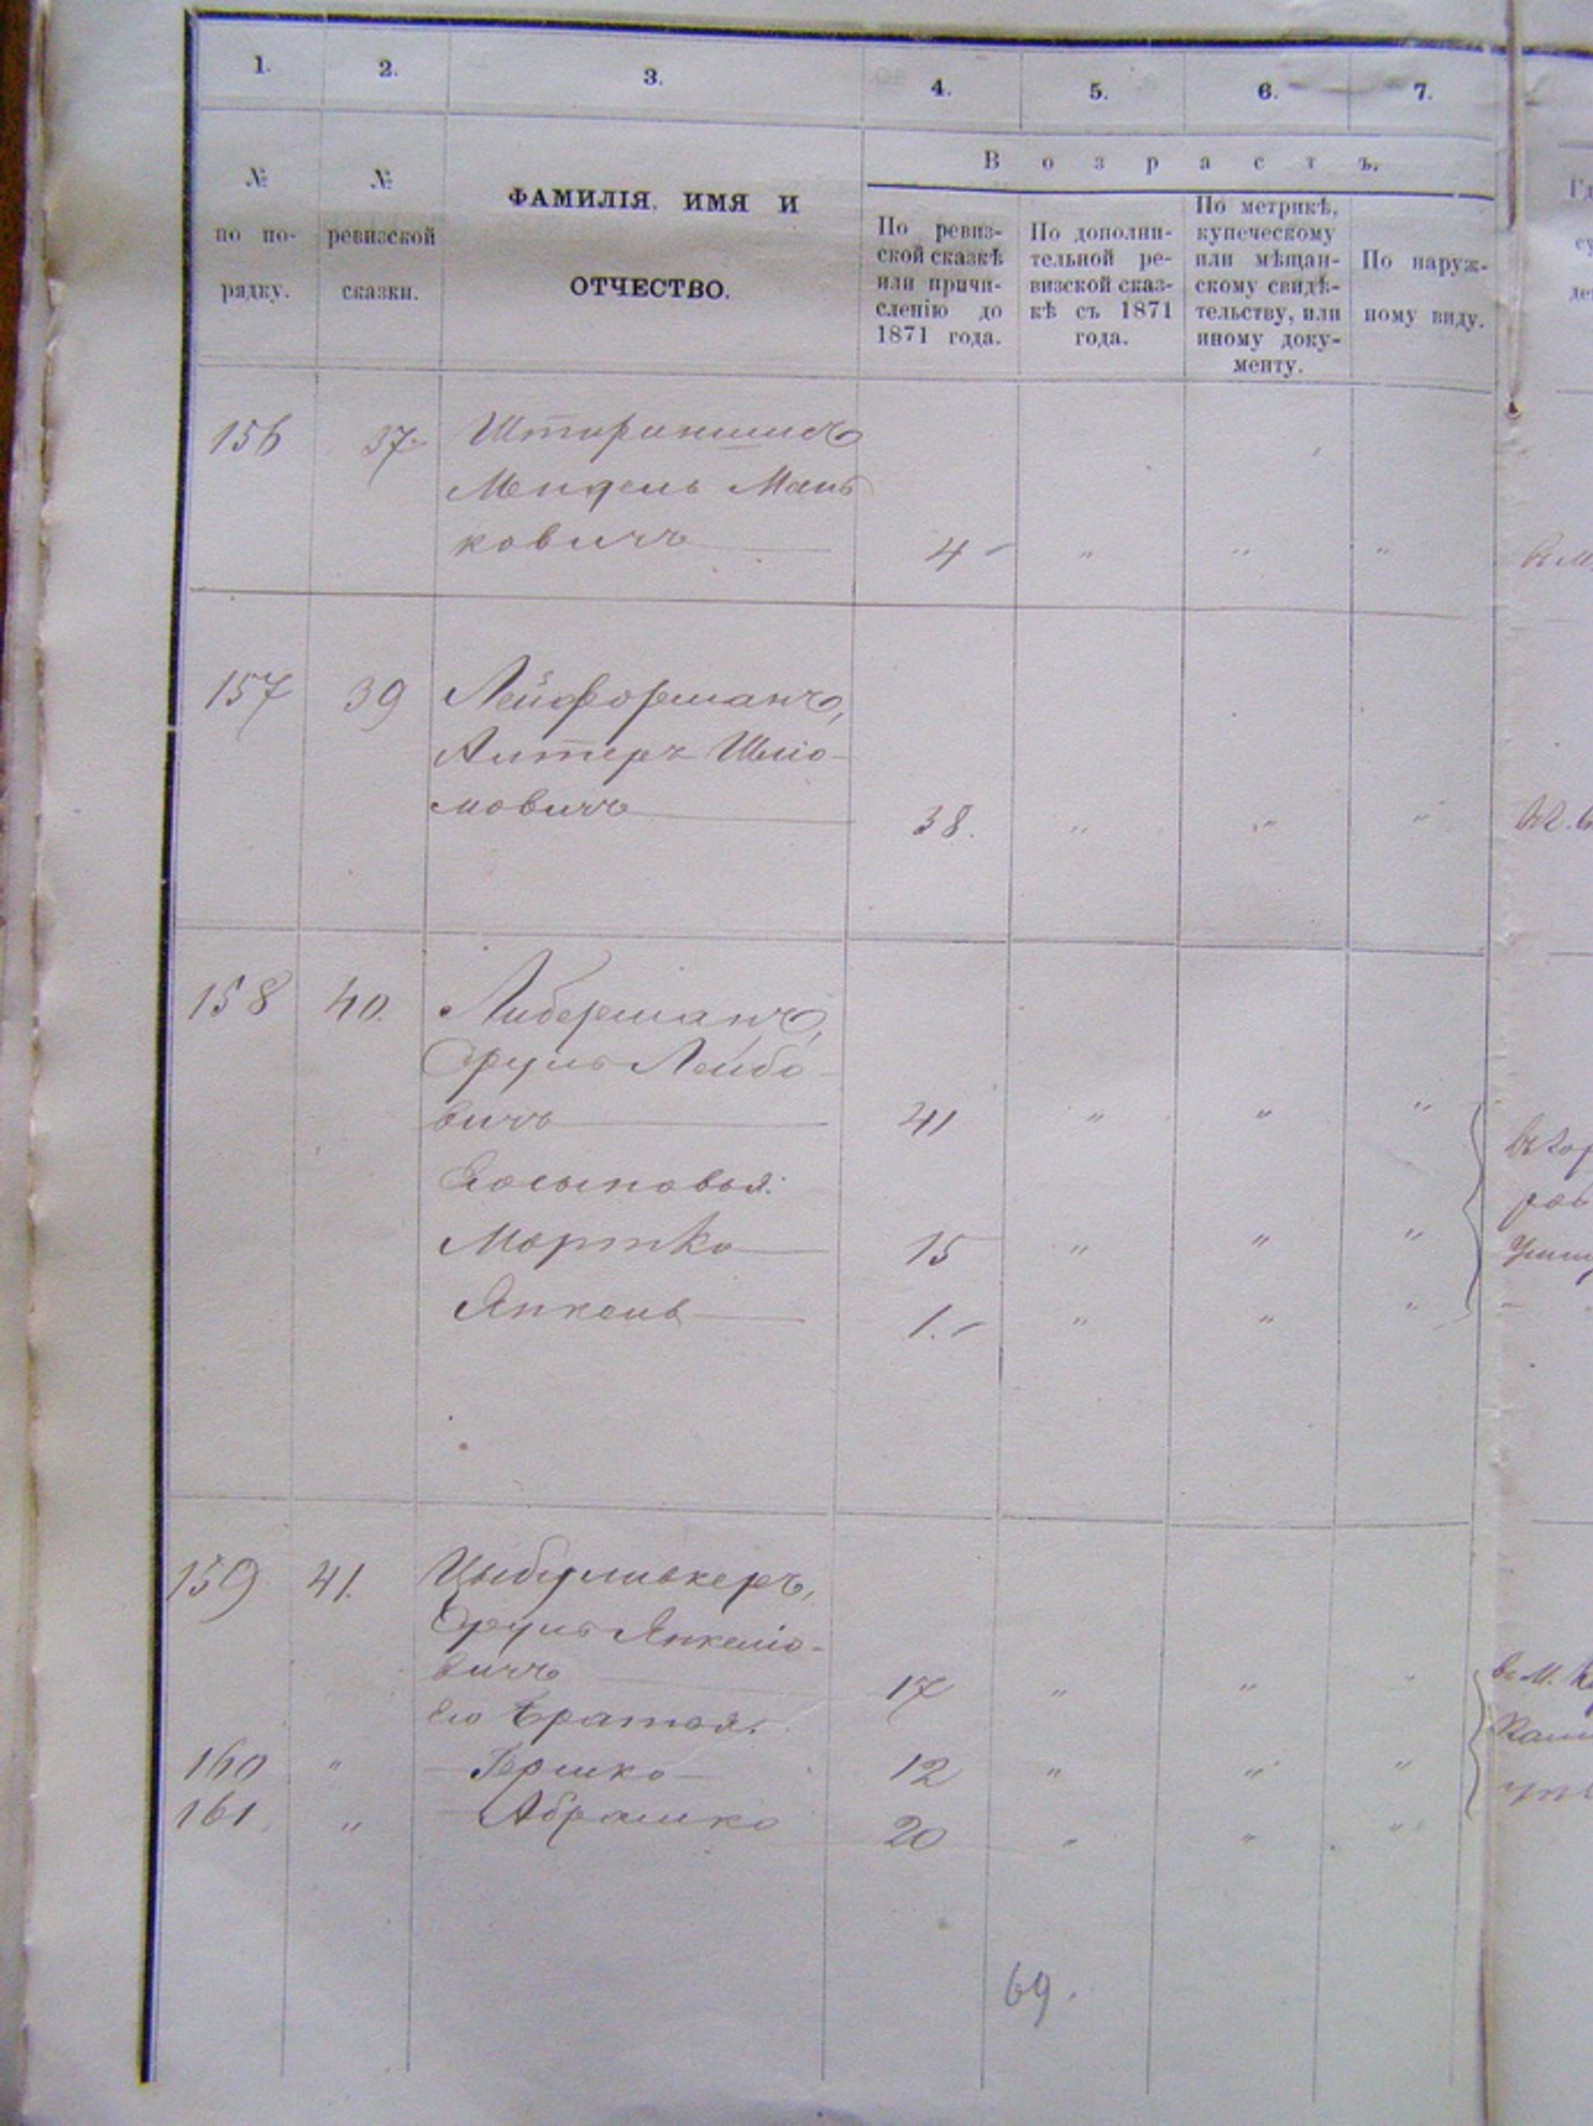 1. 2. 3. 4. 5. 6. 7.
№ по по-рядку.
№ ревизской сказки.
ФАМИЛІЯ, ИМЯ И
ОТЧЕСТВО.
В о з р а с т ъ.
По ревиз-
ской сказкѣ
или причи-
сленію до
1871 года.
По дополни-
тельной ре-
визской сказ-
кѣ съ 1871
года.
По метрикѣ,
купеческому
или мѣщан-
скому свидѣ-
тельству, или
иному доку-
менту.
По наруж-
ному виду.
156 37.
Мендель Мань
ковичъ 4 " " "
157 39 Лейферманъ,
Алтеръ Шлiо-
мовичъ 38. " " "
158 40. Либерманъ,
Сруль Лейбо-
вичъ 41 " " "
Мортко 15 " " "
Янкель 1. " " "
159 41. Цыбульвкеръ,
Сруль Янкеліо-
вичъ 17 " " "
его братья:
160 " Гершко 12 " " "
161. " Абрамко 20 " " "
69.